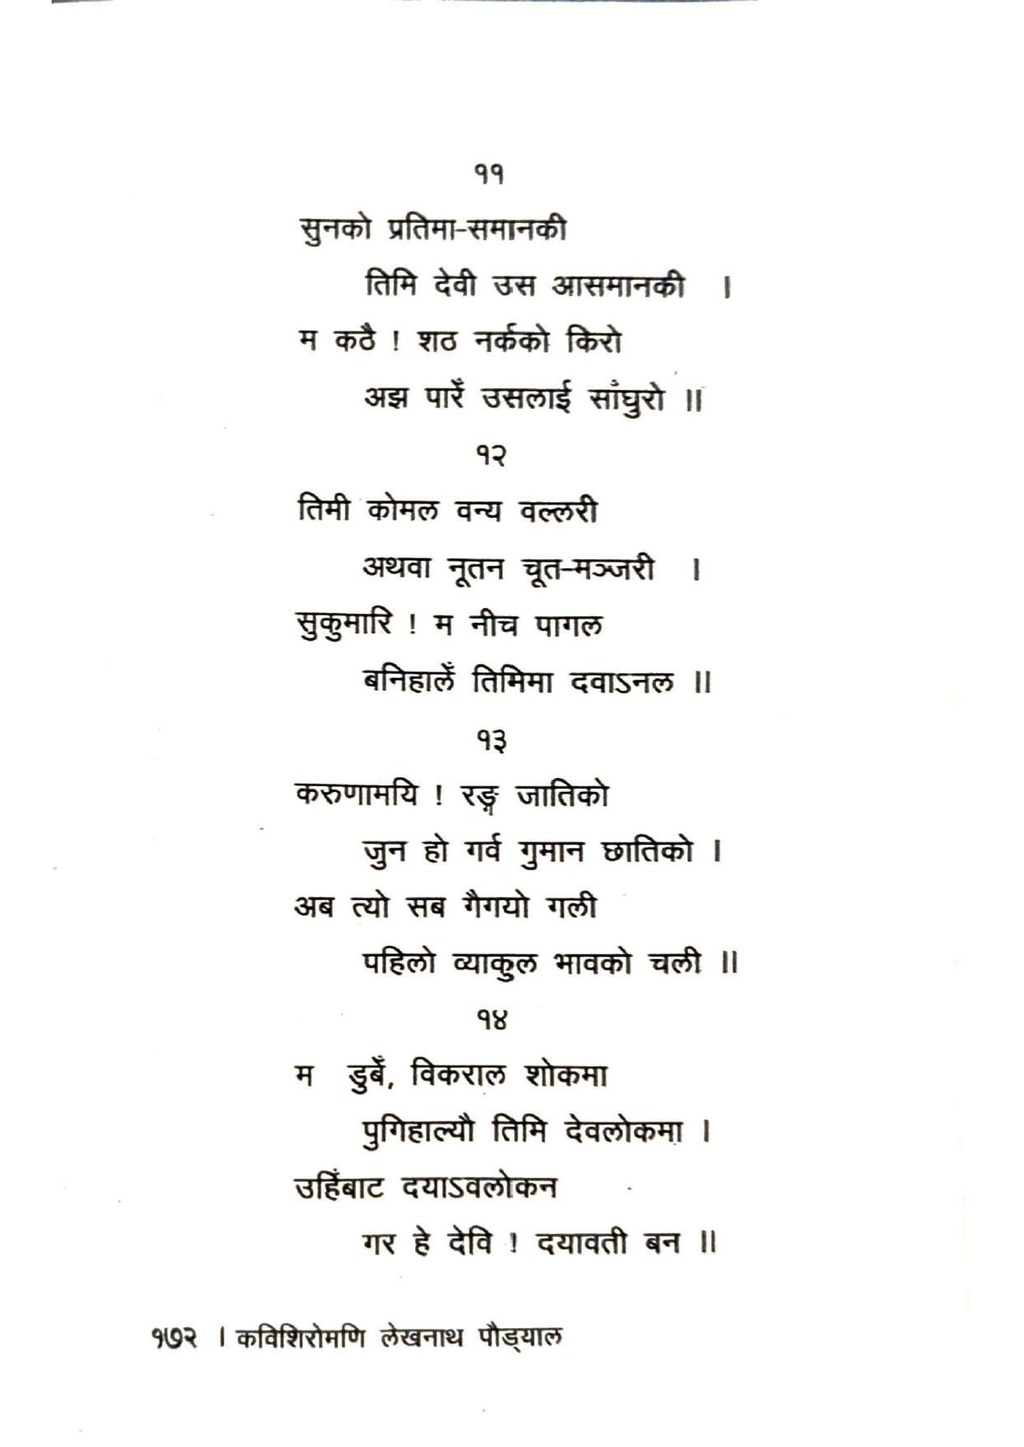 ११
सुनको प्रतिमा-समानकी
तिमि देवी उस आसमानकी ।
म कठै ! शठ नर्कको किरो
अझ पारेँ उसलाई साँघुरो ॥
१२
तिमी कोमल वन्य वल्लरी
अथवा नूतन चूत-मञ्जरी ।
सुकुमारि ! म नीच पागल
बनिहालेँ तिमिमा दवाऽनल ॥
१३
करुणामयि ! रङ्ग जातिको
जुन हो गर्व गुमान छातिको ।
अब त्यो सब गैगयो गली
पहिलो व्याकुल भावको चली ॥
१४
म डुबेँ, विकराल शोकमा
पुगिहाल्यौ तिमि देवलोकमा ।
उहिँबाट दयाऽवलोकन
गर हे देवि ! दयावती बन ॥
१७२ । कविशिरोमणि लेखनाथ पौड्याल